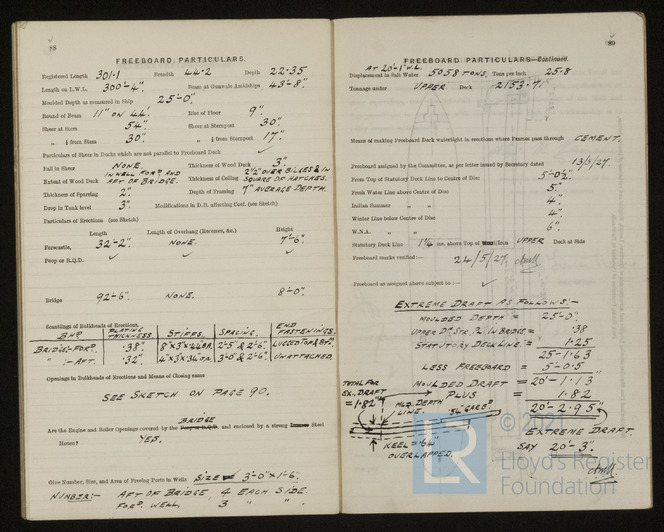 88
FREEBOARD PARTICULARS.
Registered Length 301.1 Breadth 44.2 Depth 22.35
Length on L.W.L. 300'-4". Beam at Gunwale Amidships 43'-8".
Moulded Depth as measured in Ship 25'-0".
Round of Beam 11" ON 44'. Rise of Floor 9".
Sheer at Stem 54" Sheer at Sternpost 30"
" ⅛ from Stem 30". " ⅛ from Sternpost 17".
Particulars of Sheer in Decks which are not parallel to Freeboard Deck ✓
Fall in Sheer NONE. Thickness of Wood Deck 3".
Extent of Wood Deck IN WELL FORD. AND AFT OF BRIDGE. Thickness of Ceiling 2½" OVER BILGES & IN SQUARE OF HATCHES.
Thickness of Sparring 2". Depth of Framing 7" AVERAGE DEPTH.
Drop in Tank level 3". Modifications in D.B. affecting same (see Sketch)
Particulars of Erections (see Sketch)
Length Length of Overhang (Recesses, &c.) Height
Forecastle, 32'-2". NONE. 7'-6".
Poop or R.Q.D. ✓ ✓ ✓
Bridge 92'-6". NONE. 8'-0".
Scantlings of Bulkheads of Erections.
BHD. PLATING THICKNESS STIFFS. SPACING. END FASTENINGS.
BRIDGE:- FORD. .38" 8"x3"x.44 B.A. 2'-5 & 2'-6". LUGGED TOP & BTM.
" :- AFT. .32" 4"x3"x.34 O.A. 3'-0 & 2'-6". UNATTACHED.
Openings in Bulkheads of Erections and Means of Closing same
SEE SKETCH ON PAGE 90.
BRIDGE
Are the Engine and Boiler Openings covered by the Poop or R.Q.D. and enclosed by a strong Iron or Steel
House? YES.
Give Number, Size, and Area of Freeing Ports in Wells SIZE 3'-0" x 1'-6".
NUMBER:- AFT OF BRIDGE, 4 EACH SIDE.
FORD. WELL, 3 " " .
89
FREEBOARD PARTICULARS—Continued.
AT 20'-1" W.L.
Displacement in Salt Water 5058 TONS. Tons per inch 25.8
Tonnage under UPPER Deck 2153.71
Means of making Freeboard Deck watertight in erections where Frames pass through CEMENT.
Freeboard assigned by the Committee, as per letter issued by Secretary dated 13/5/27.
From Top of Statutory Deck Line to Centre of Disc 5'-0½".
Fresh Water Line above Centre of Disc 5".
Indian Summer " " 4".
Winter Line below Centre of Disc 4".
W.N.A. " " 6".
Statutory Deck Line 1¼ ins. above Top of Wood/Iron UPPER Deck at Side
Freeboard marks verified:— 24/5/27.
Freeboard as assigned above subject to :— ✓
EXTREME DRAFT AS FOLLOWS:-
MOULDED DEPTH = 25'-0".
UPPER DK. STR. PL. IN BRIDGE = .38
STATUTORY DECK LINE = 1.25
25-1.63
LESS FREEBOARD = 5'-0.5
MOULDED DRAFT = 20'-1.13
PLUS = 1.82
20'-2.95"
EXTREME DRAFT
SAY 20'-3".
TOTAL FOR
EX. DRAFT
= 1.82"
MLD. DEPTH
LINE.
.54" GARBD
KEEL = .64"
OVERLAPPED.
© 202
LR
Lloyd's Register
Foundation